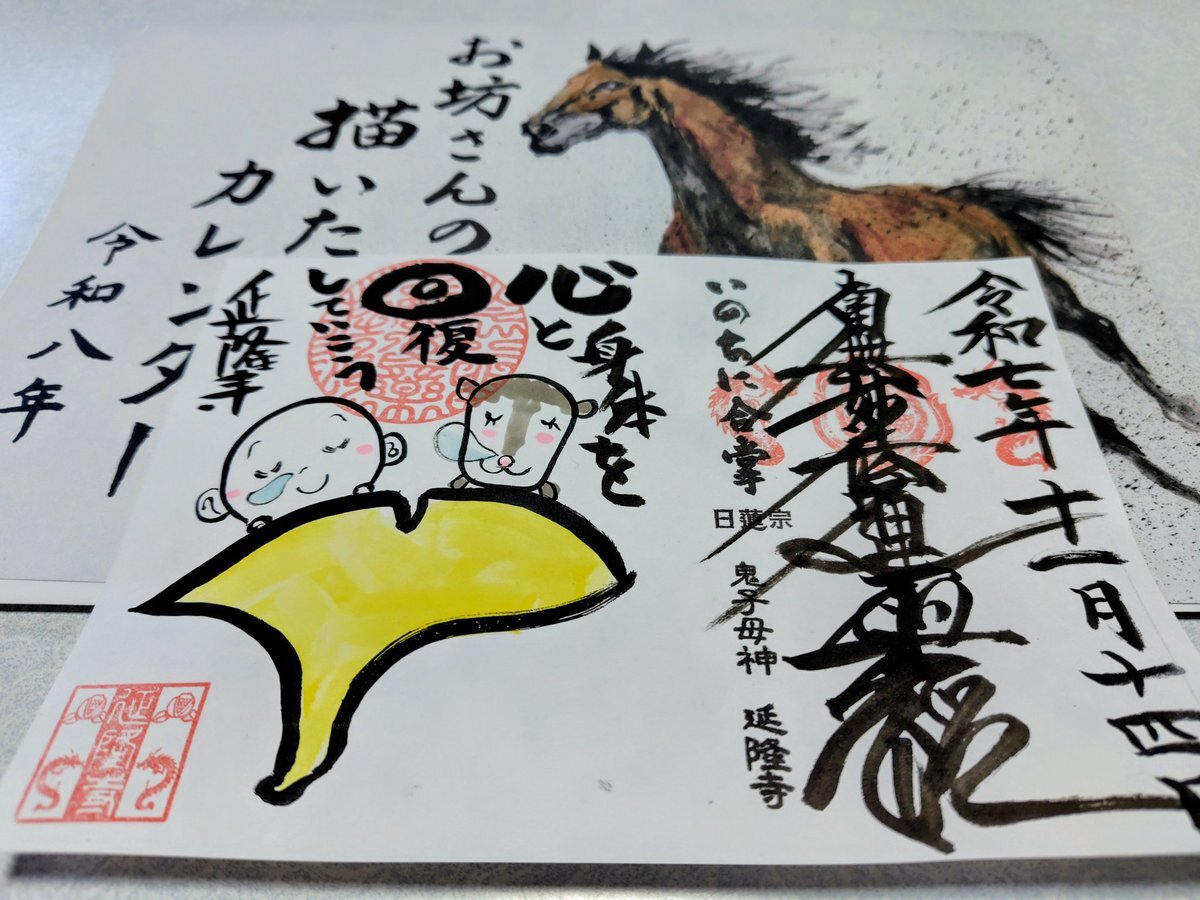 お坊さんの
描いた
カレンダー
令和八年
令和七年十一月十四日
南無妙法蓮華経
いのちに合掌
日蓮宗 鬼子母神 延隆寺
心と
身体を
回復
していこう
延隆寺
延隆寺